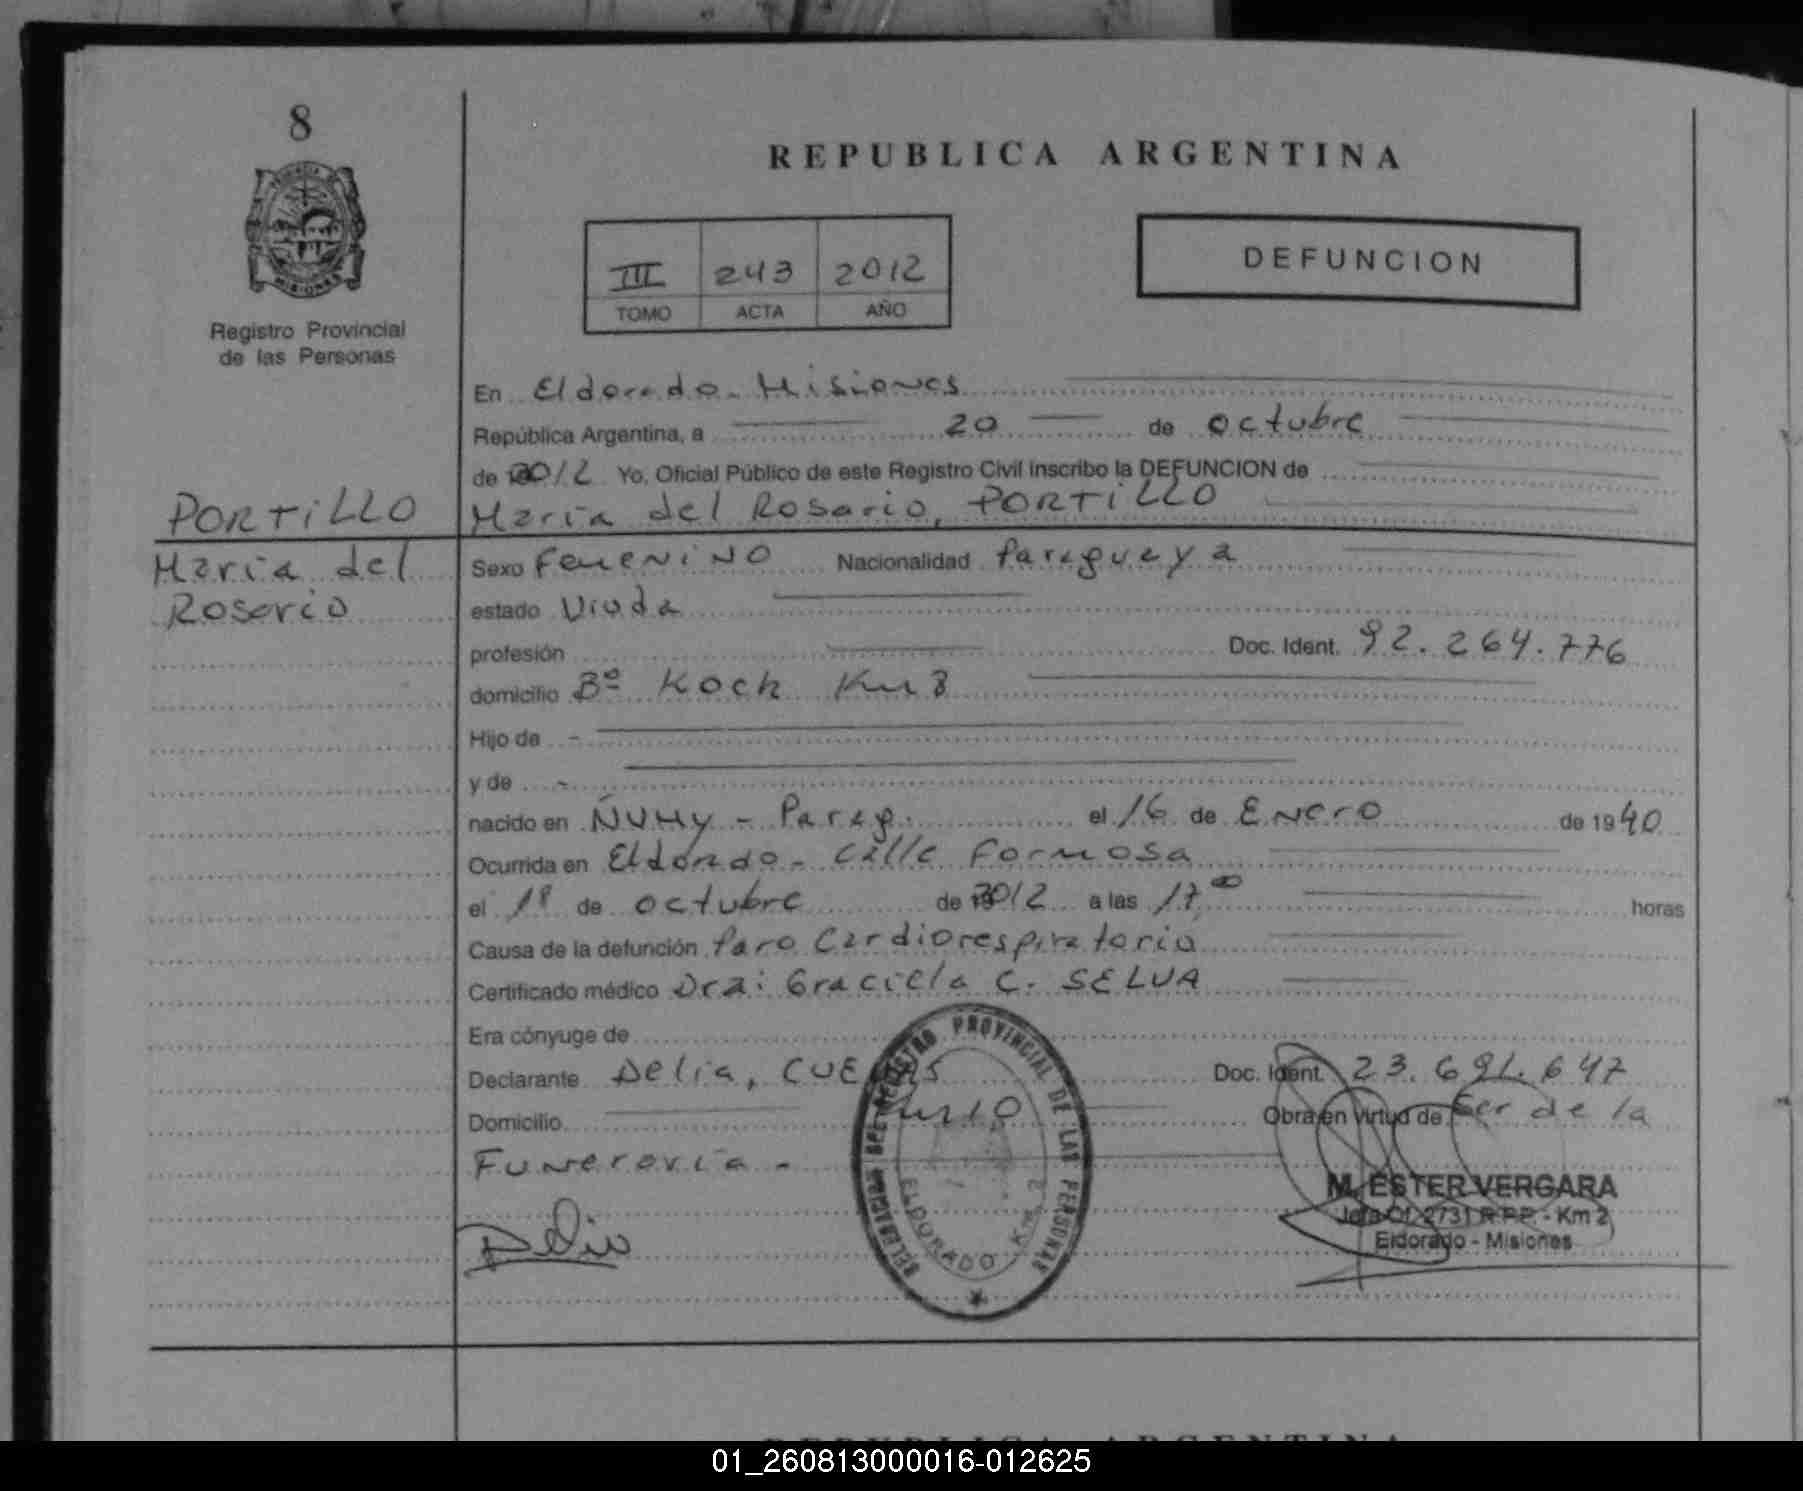 8
REPUBLICA ARGENTINA
MISIONES
Registro Provincial
de las Personas
III 243 2012
TOMO ACTA AÑO
DEFUNCION
En Eldorado - Misiones
República Argentina, a 20 de octubre
de 2012 Yo, Oficial Público de este Registro Civil inscribo la DEFUNCION de
PORTILLO
María del Rosario, PORTILLO
María del
Rosario
Sexo Femenino Nacionalidad Paraguaya
estado Viuda
profesión Doc. Ident. 92.264.776
domicilio Bº Koch Km 8
Hijo de -
y de -
nacido en ÑUMY - Parag. el 16 de Enero de 1940
Ocurrida en Eldorado - Calle Formosa
el de octubre de 2012 a las 17 00 horas
Causa de la defunción Paro Cardiorespiratorio
Certificado médico Dra: Graciela C. SELVA
Era cónyuge de
Declarante Delia, Doc. Ident. 23.691.647
Domicilio Km 10 Obra en virtud de Ser de la
Funeraria -
Delia
DELEGACION DEL REGISTRO PROVINCIAL DE LAS PERSONAS
ELDORADO Km. 2
M. ESTER VERGARA
Jefa Of. 2731 R.P.P. - Km 2
Eldorado - Misiones
REPUBLICA ARGENTINA
01_260813000016-012625